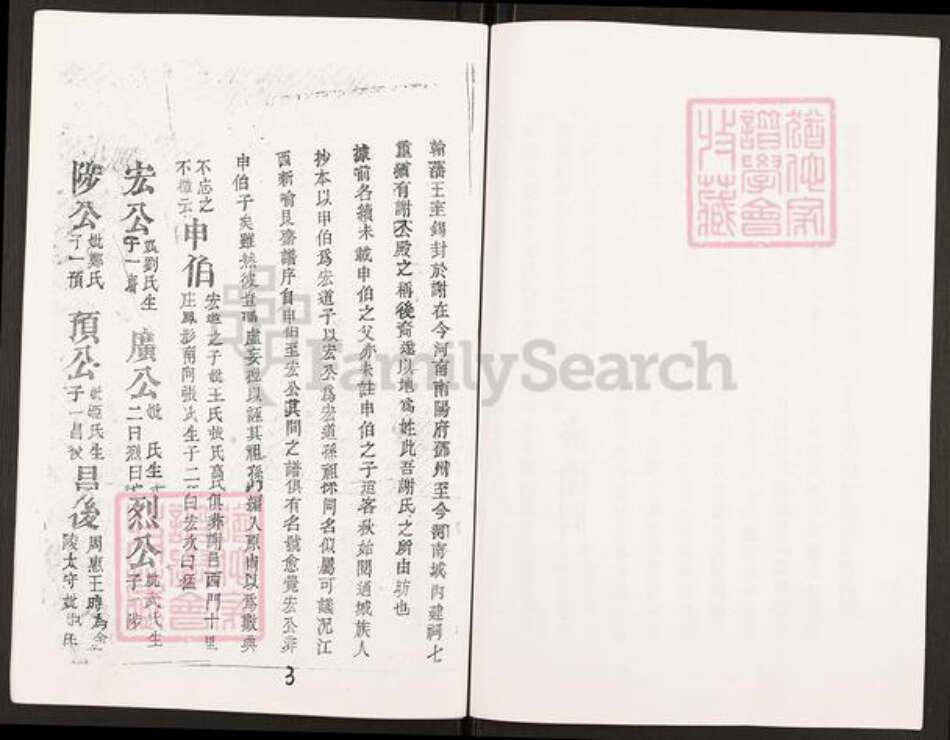 翰藩王室錫封於謝在今河南南陽府鄧州至今河南城內建祠七
重猶有謝丕殿之稱後裔遂以地爲姓此吾謝氏之所由昉也
據前名績未載申伯之父亦未註申伯之子迨客秋始閱通城族人
抄本以申伯爲宏道子以宏丕爲宏道孫祖孫同名似屬可議况江
西新喻艮齋譜序自申伯至宏公其間之譜俱有名號愈覺宏丕非
申伯子矣雖然彼豈憑虛妄揑以誣其祖孫乃編入原由以爲數典
不忘之
不慥云
申伯
宏道之子妣王氏張氏高氏俱葬謝邑西門十里
庄鳳形南向張氏生子二日宏次曰
宏公
妣劉氏生
子一廣
廣公
妣 氏生
二曰烈曰
烈公
妣武氏生
子 陟
陟公
妣鄭氏
子一預
預公
妣姬氏生
子一昌後
昌後
周惠王時爲金
陵太守妣
3
譜學會
收藏
FamilySearch